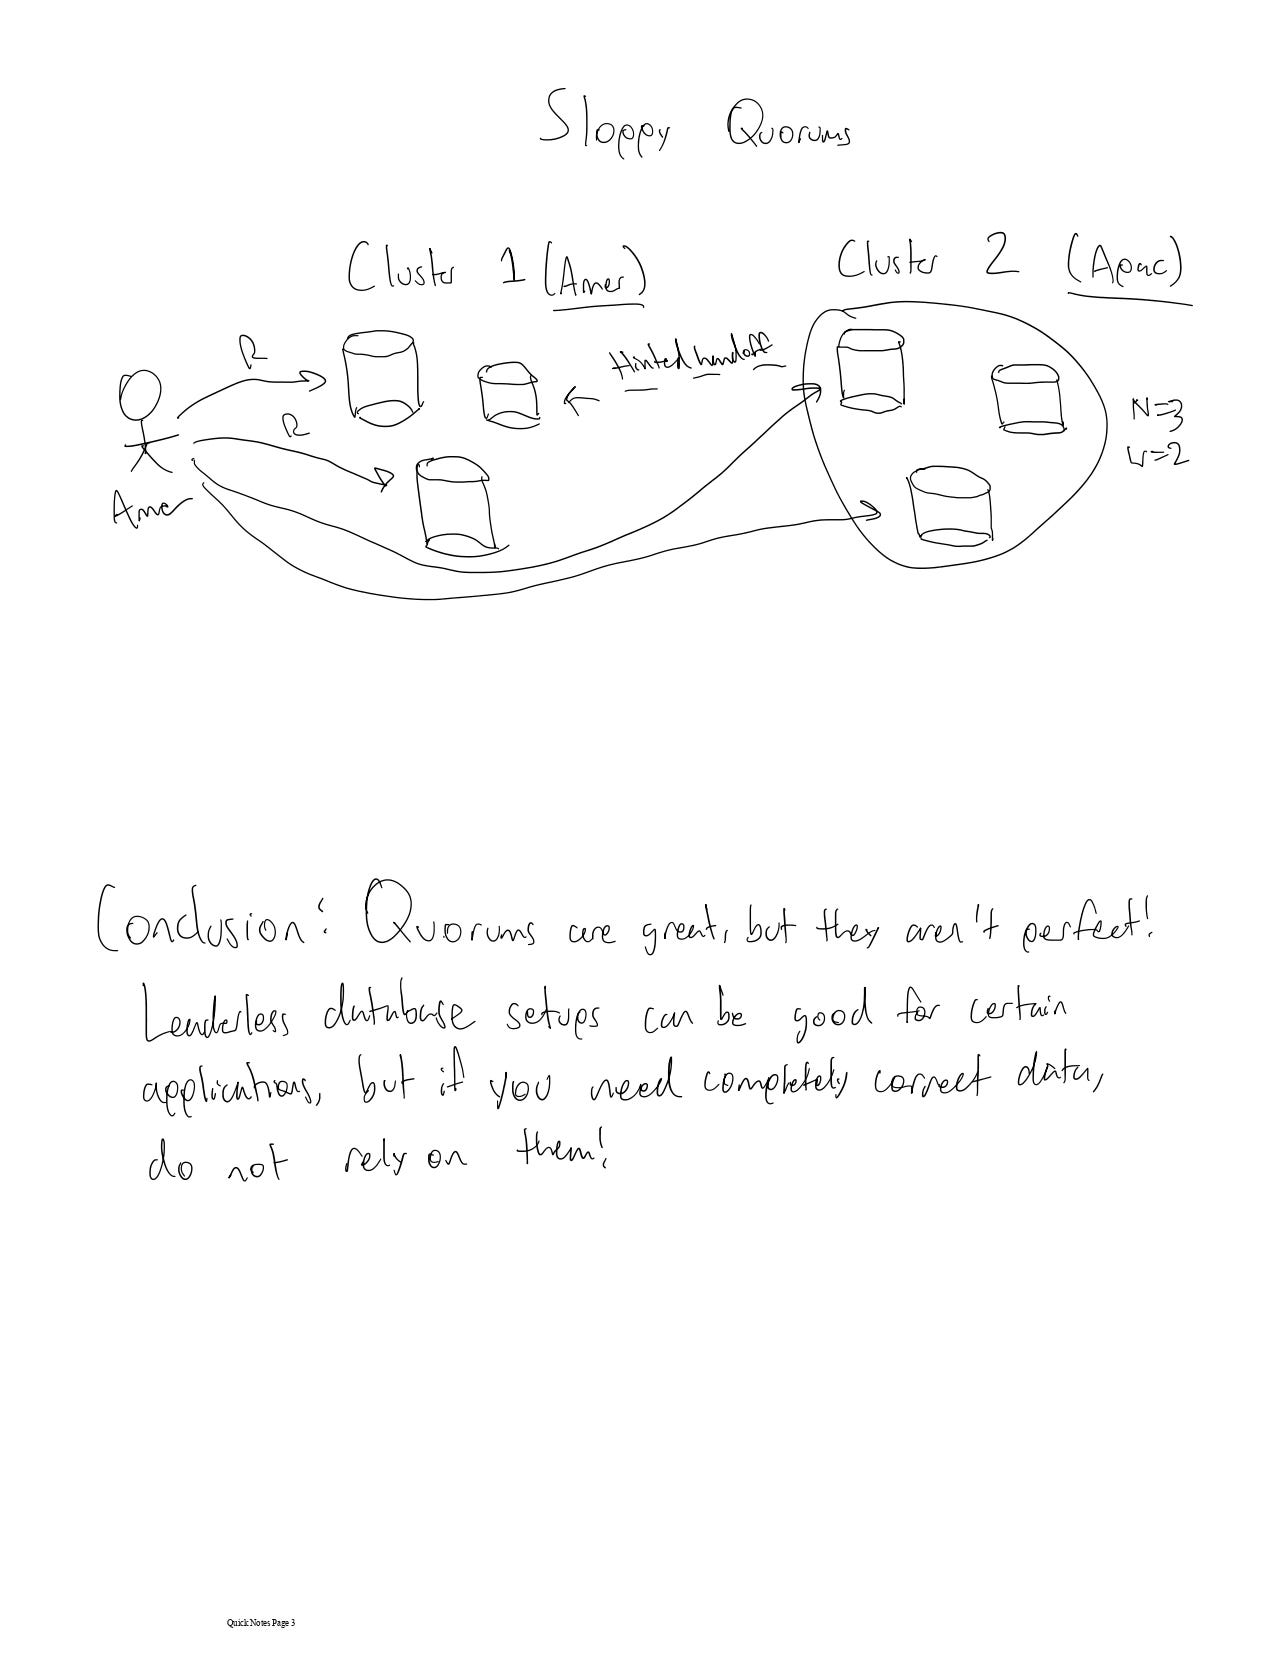 Sloppy Quorums
Cluster 1 (Amer)
Cluster 2 (Apac)
R
Hinted handoff
R
N=3
W=2
Amer
Conclusion: Quorums are great, but they aren't perfect!
Leaderless database setups can be good for certain
applications, but if you need completely correct data,
do not rely on them!
Quick Notes Page 3